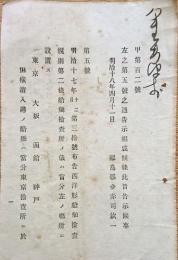 甲第百二號
左之第五號之通告示相成候條此旨告示候事
明治十八年四月十一日 福島縣令赤司欽一
第五號
明治十七年十二月第三十號布告西洋形船舶檢査
規則第二條船舶檢査所ノ儀ハ當分左ノ場所ニ
設置ス
一東京 大坂 函館 神戸
但橫濱入港ノ船舶ハ當分東京檢査所ニ於